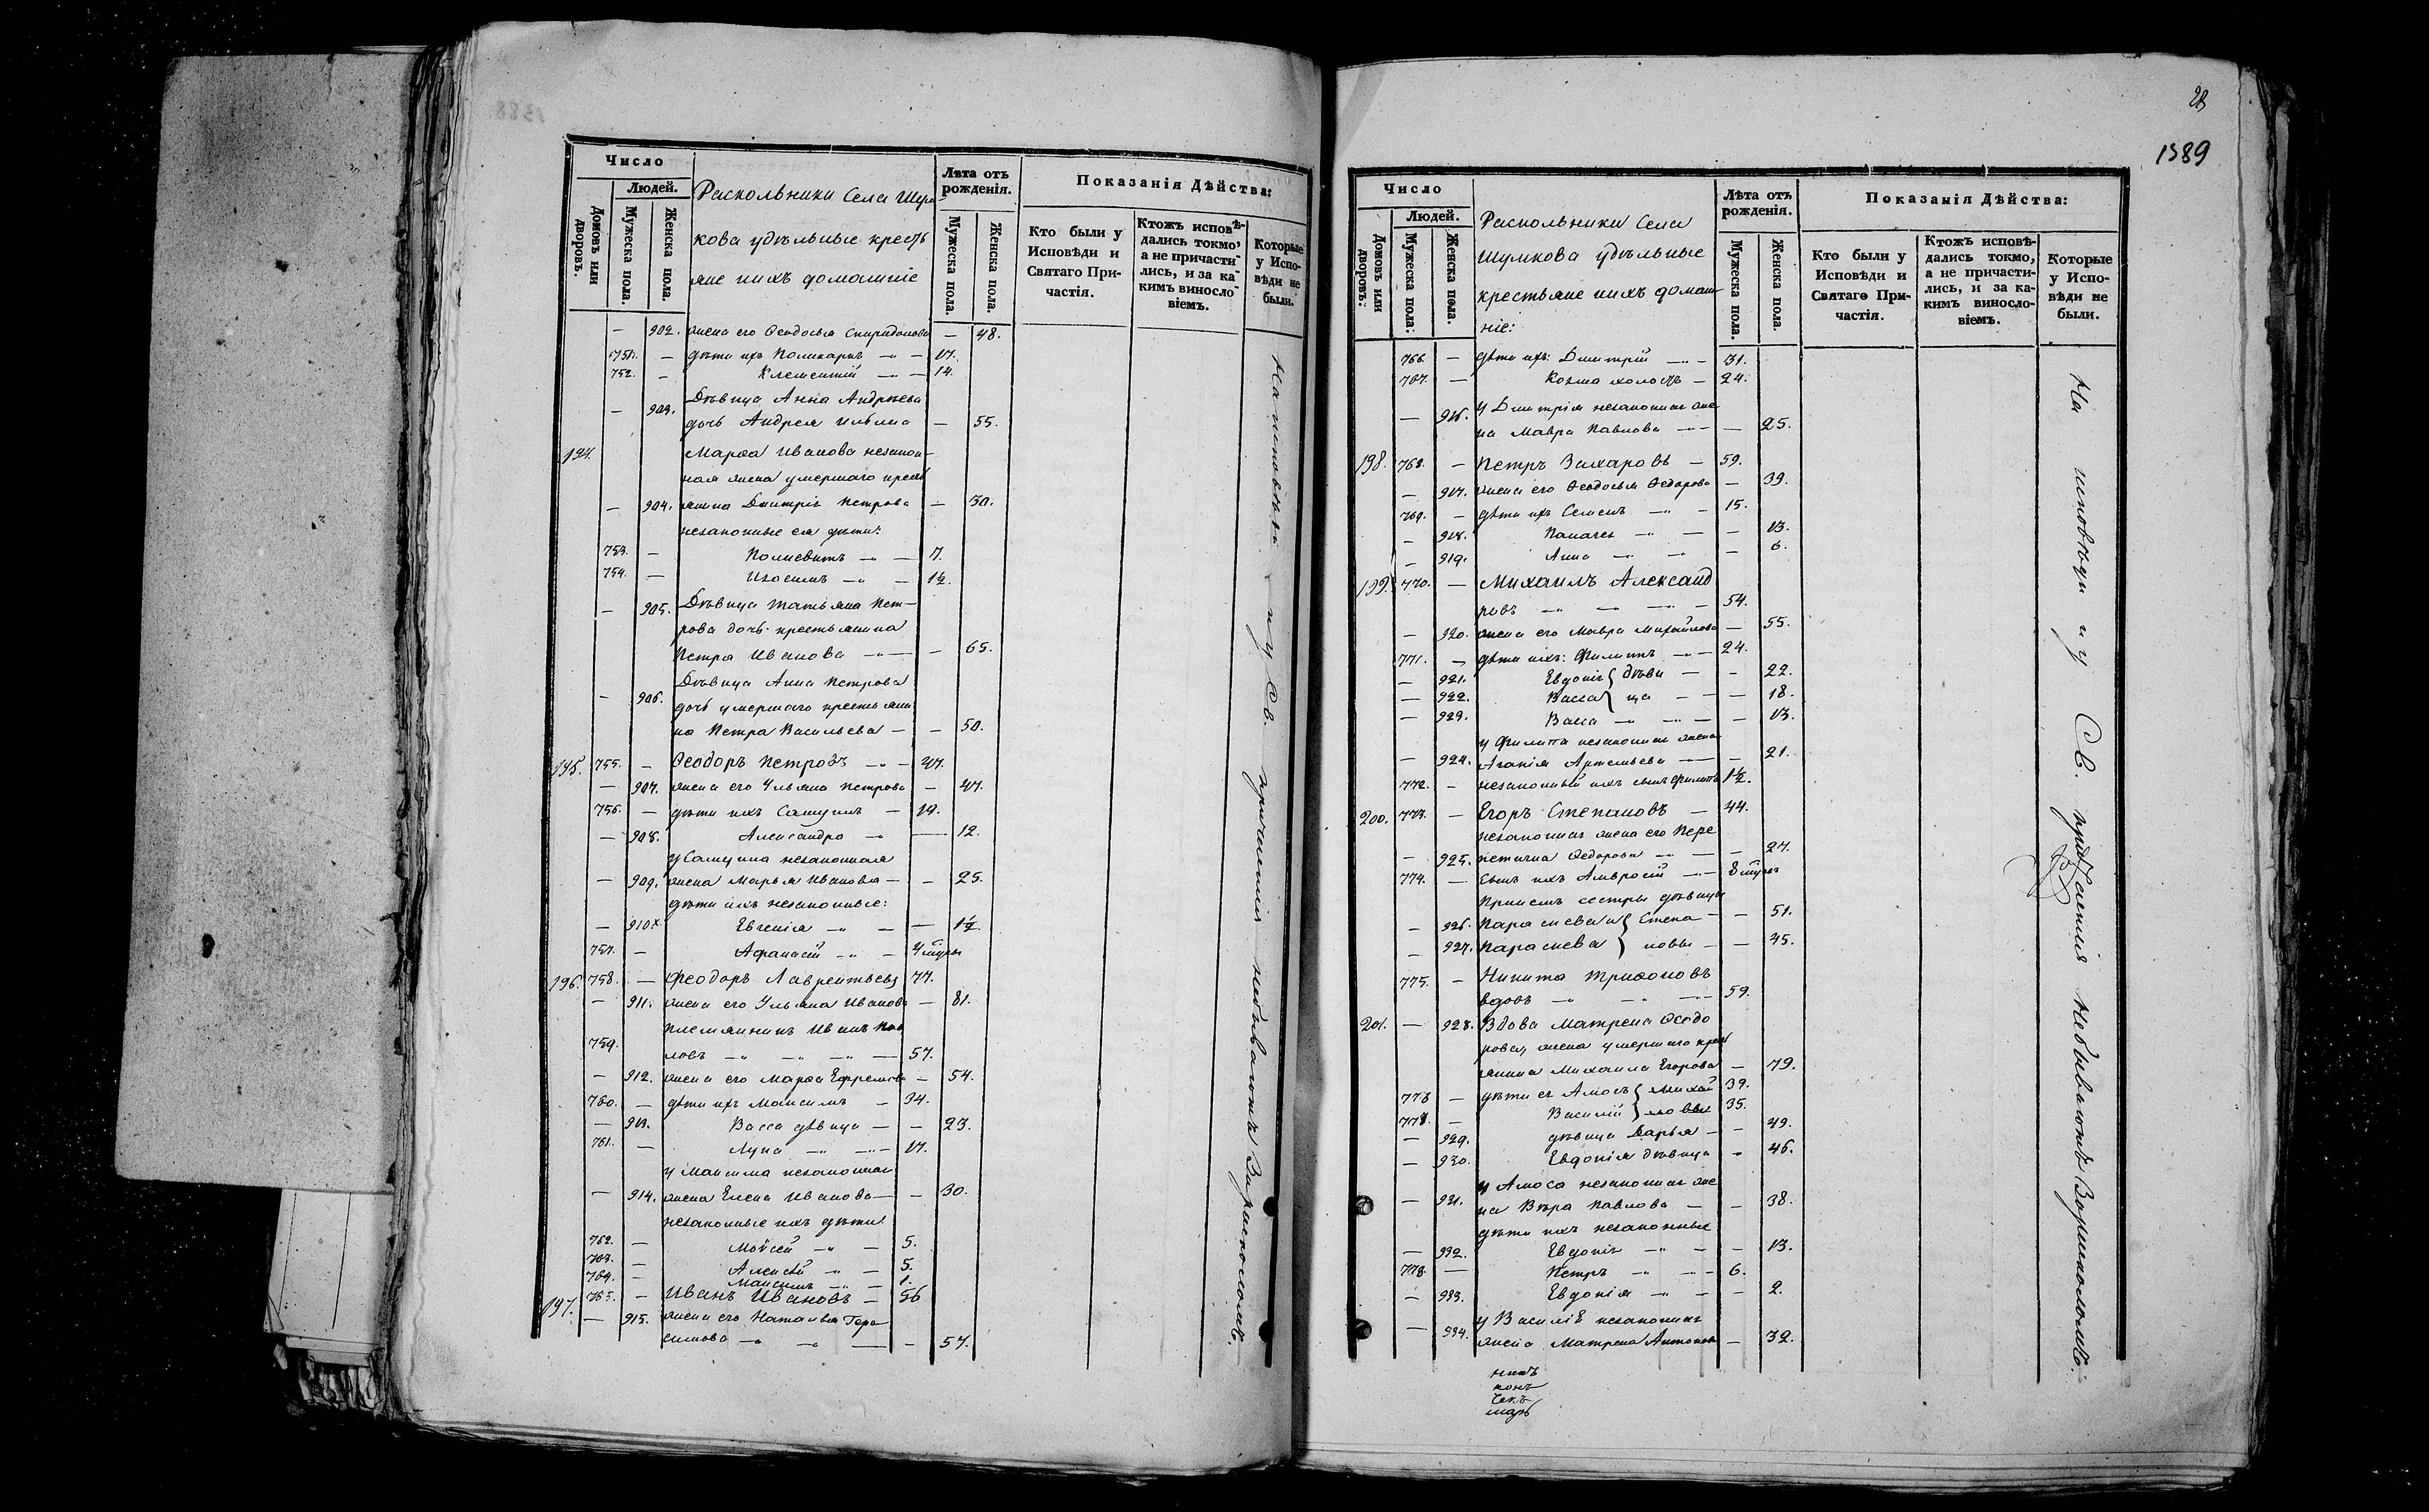 Число
Людей.
Домовъ или дворовъ.
Мужеска пола.
Женска пола.
Раскольники Села Шум
кова удѣльные кресть
яне ихъ домашніе
Лѣта отъ рожденія.
Мужеска пола.
Женска пола.
Показанія Дѣйства:
Кто были у Исповѣди и Святаго Причастія.
Ктожъ исповѣдались токмо, а не причастились, и за какимъ винословіемъ.
Которые у Исповѣди не были.
— 902. жена его Ѳеодосья Спиридонова — 48.
751. — дѣти ихъ Поликарпъ — 17.
752. — Климентій — 14.
Дѣвица Анна Андреева
— 903. дочь Андрея Ильина — 55.
194. Марѳа Иванова незакон-
ная жена умершаго кресть
— 904. янина Дмитрія Петрова — 30.
незаконные ея дѣти:
753. —
754. — Изосимъ — 1½.
— 905. Дѣвица Татьяна Пет-
рова дочь крестьянина
Петра Иванова — 65.
Дѣвица Анна Петрова
— 906. дочь умершаго крестьяни
на Петра Васильева — 50.
195. 755. — Ѳеодоръ Петровъ — 47.
— 907. жена его Ульяна Петрова — 47.
756. — дѣти ихъ Самуилъ — 19.
— 908. Александра — 12.
у Самуила незаконная
— 909. жена Марья Иванова — 25.
дѣти ихъ незаконные:
— 910 Евгенія — 1½
757. — Аѳанасій —
196. 758. — Феодоръ Лаврентьевъ 77.
— 911. жена его Ульяна Иванова — 81.
племянникъ Иванъ Пав
759. ловъ — 57.
— 912. жена его Марѳа Ефремова — 54.
760. — дѣти ихъ Максимъ — 34.
— 913. Васса дѣвица — 23.
761. — Лука — 17.
у Максима незаконная
— 914. жена Елена Иванова — 30.
незаконные ихъ дѣти:
762. — Мойсей — 5.
763. — Алексѣй — 5.
764. — Максимъ — 1.
197. 765. — Иванъ Ивановъ — 56
— 915. жена его Наталья Гера
симова — 57.
На исповѣди и у Св. причастія небываютъ За расколомъ.
28
1389
Число
Людей.
Домовъ или дворовъ.
Мужеска пола.
Женска пола.
Раскольники Села
Шумкова удѣльные
крестьяне ихъ домаш
ніе:
Лѣта отъ рожденія.
Мужеска пола.
Женска пола.
Показанія Дѣйства:
Кто были у Исповѣди и Святаго Причастія.
Ктожъ исповѣдались токмо, а не причастились, и за какимъ винословіемъ.
Которые у Исповѣди не были.
766. — дѣти ихъ: Дмитрій — 31.
767. — Козма холостъ — 24.
— 916. у Дмитрія незаконная же
на Мавра Павлова — 25.
198. 768. — Петръ Захаровъ — 59.
— 917. жена его Ѳеодосья Ѳедорова — 39.
769. — дѣти ихъ Семенъ — 15.
— 918. — 13.
— 919. Анна — 6.
199. 770. — Михаилъ Александ
ровъ — 54.
— 920. жена его Мавра Михайлова — 55.
771. — дѣти ихъ: Филиппъ — 24.
— 921. Евдокія } дѣви — 22.
— 922. Васса } ца — 18.
— 923. Васса — 13.
у Филиппа незаконная жена
— 924. Агапія Артемьева — 21.
772. — незаконный ихъ сынъ Филиппъ 1½.
200. 773. — Егоръ Степановъ — 44.
незаконная жена его Пере
— 925. петина Ѳедорова — 27.
774. — Сынъ ихъ Амвросій —
сестры дѣвицы
— 926. Параскева } Степа — 51.
— 927. Параскева } новы — 45.
775. — Никита Трифоновъ
вдовъ — 59.
201. — 928. Вдова Матрена Ѳеодо
рова, жена умершаго крест
янина Михаила Егорова — 79.
776 — дѣти ея Амосъ } Михай 39.
777. — Василій } ловы 35.
— 929. дѣвица Дарья — 49.
— 930. Евдокія дѣвица — 46.
у Амоса незаконная же
— 931. на Вѣра Павлова — 38.
дѣти ихъ незаконные
— 932. Евдокія — 13.
778. — Петръ — 6.
— 933. Евдокія — 2.
у Василія незаконная
— 934. жена Матрена Антонова — 32.
На исповѣди и у Св. причастія небываютъ За расколомъ.